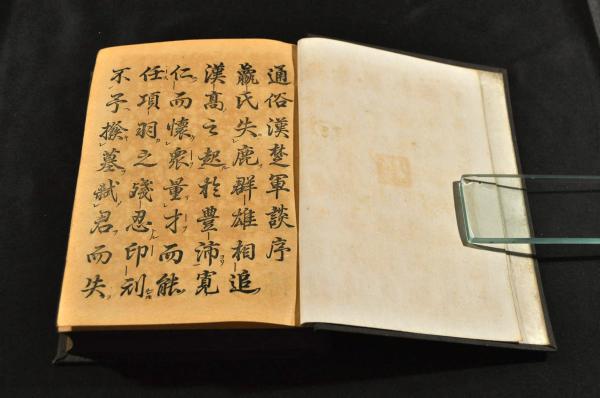 通俗漢楚軍談序
嬴氏失鹿群雄相追
漢高之起於豊沛寛
仁而懷衆量才而能
任項羽之殘忍印刓
不予撥墓弑君而失